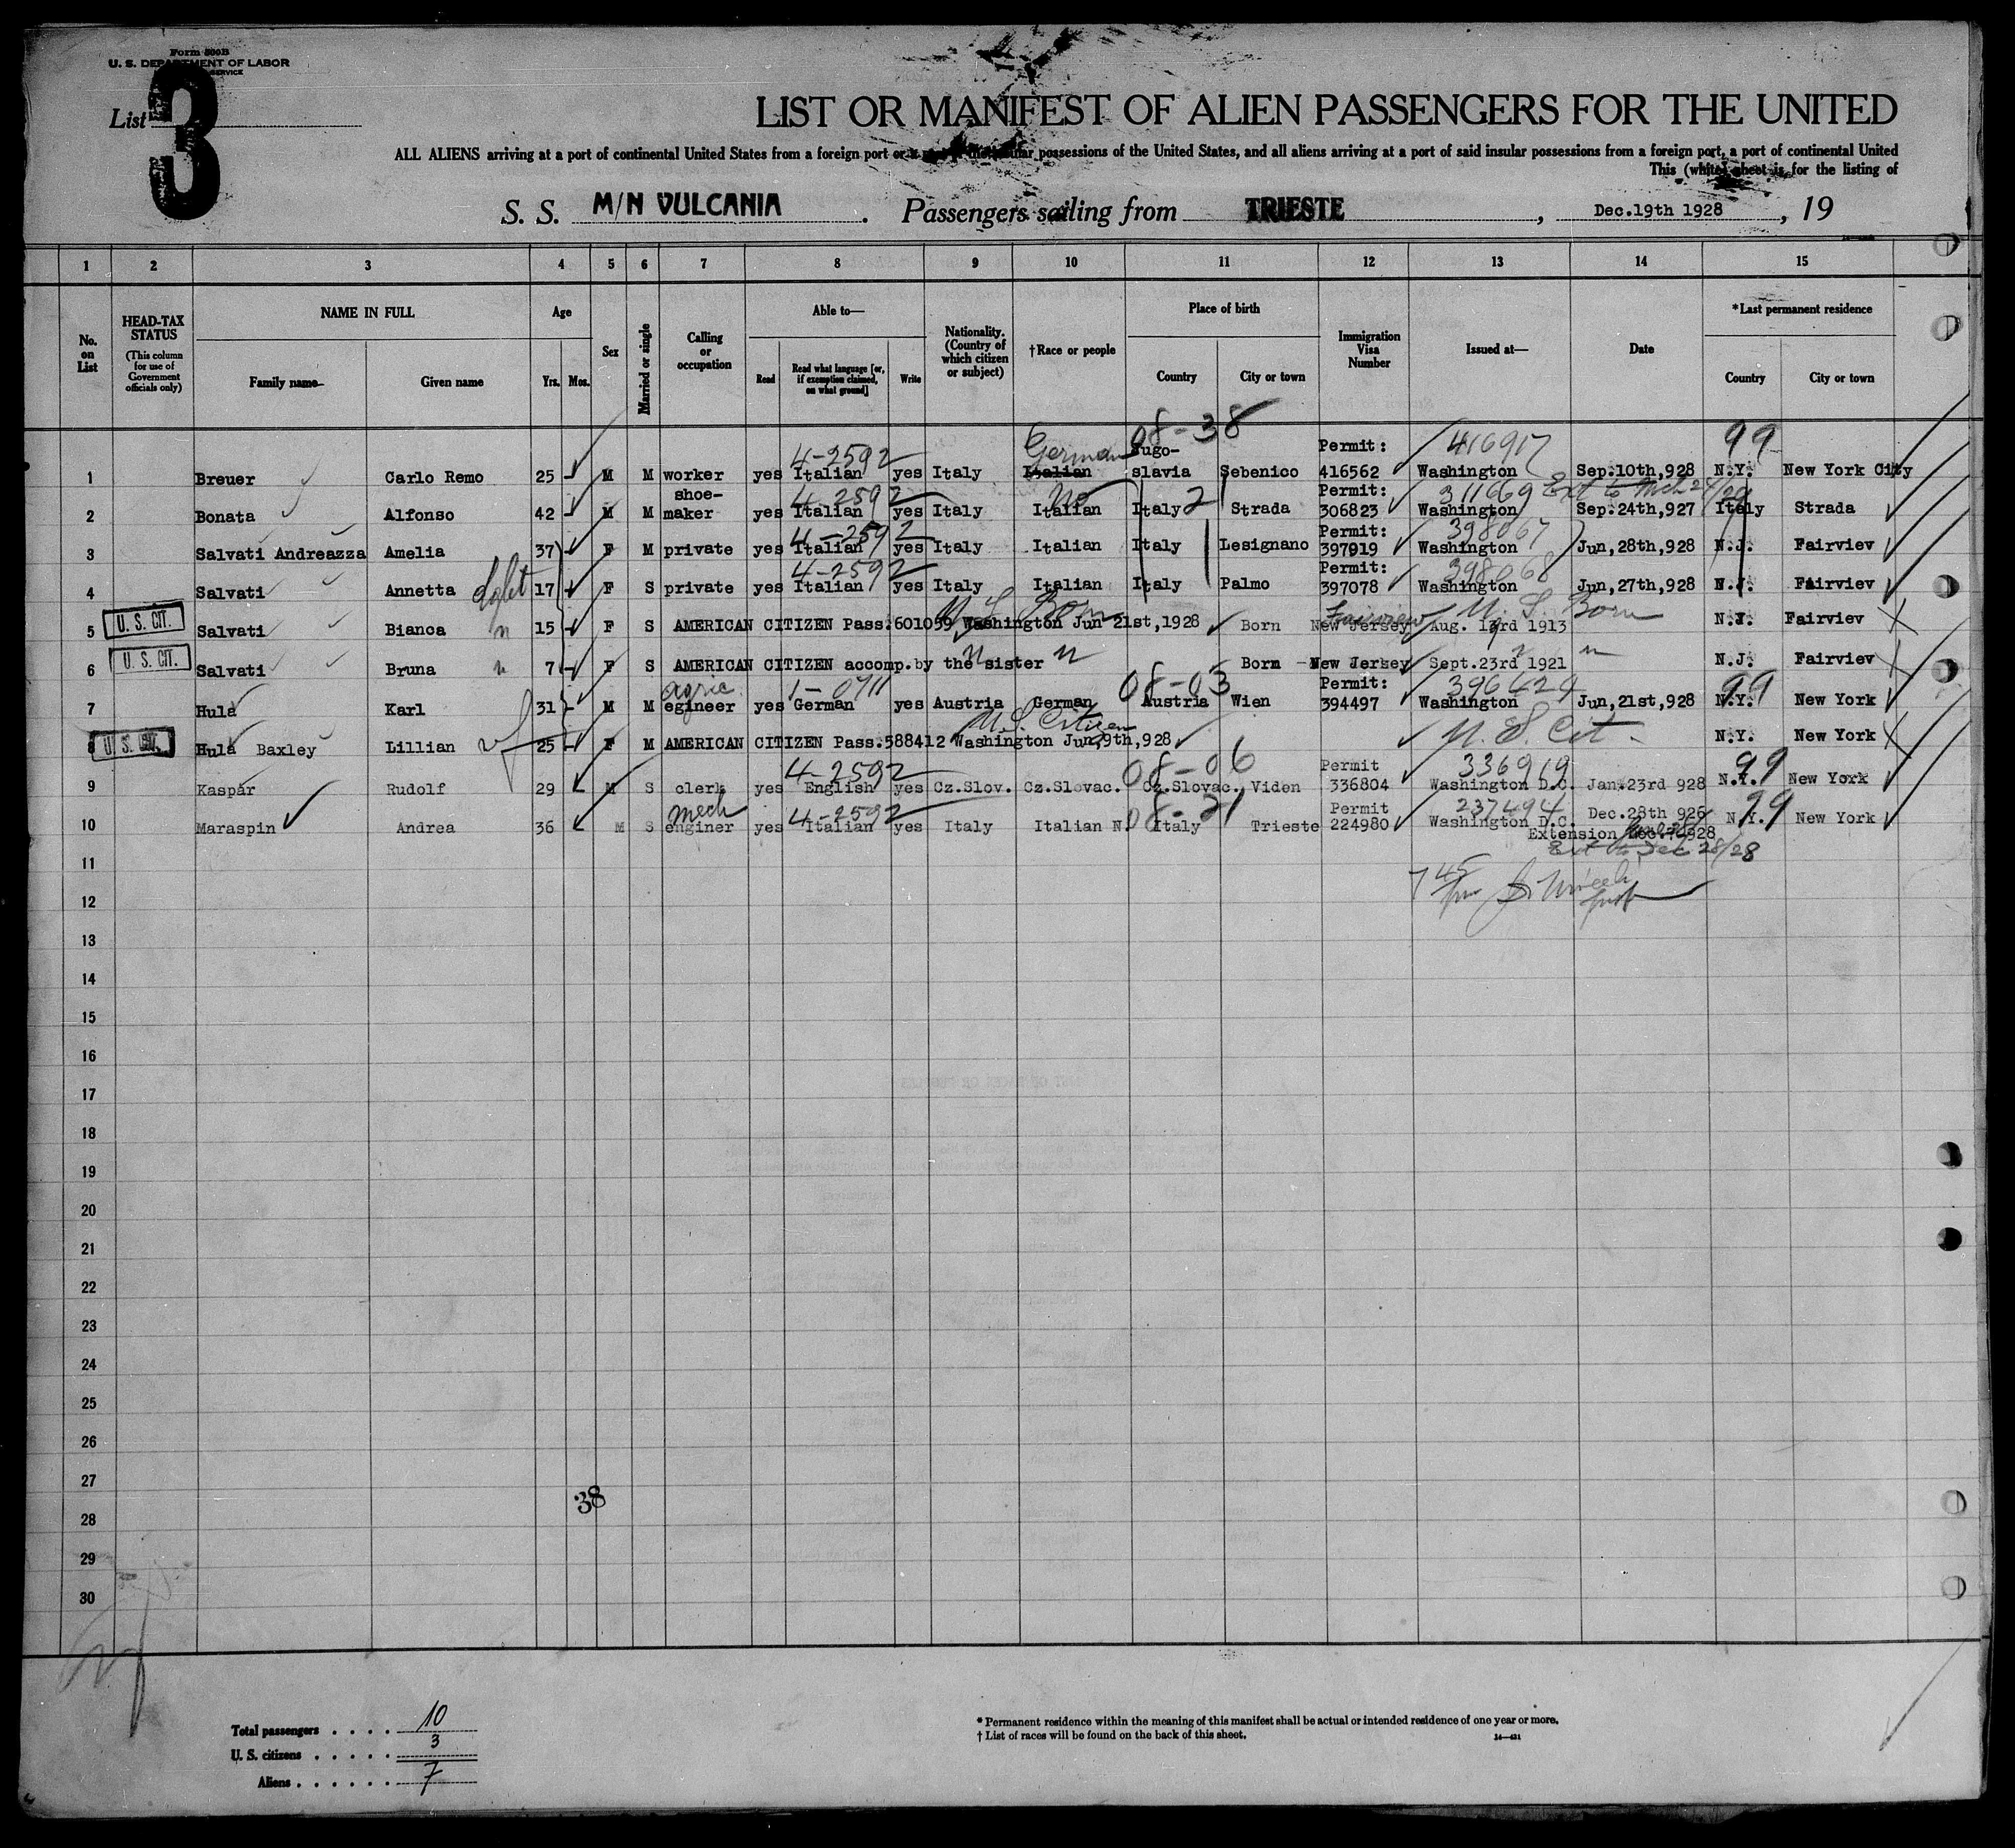 Form 500B
U. S. DEPARTMENT OF LABOR
SERVICE
List 3
LIST OR MANIFEST OF ALIEN PASSENGERS FOR THE UNITED
ALL ALIENS arriving at a port of continental United States from a foreign port or a port of the insular possessions of the United States, and all aliens arriving at a port of said insular possessions from a foreign port, a port of continental United
This (white) sheet is for the listing of
S. S. M/N VULCANIA. Passengers sailing from TRIESTE, Dec.19th 1928, 19
1 2 3 4 5 6 7 8 9 10 11 12 13 14 15
No. on List
HEAD-TAX STATUS (This column for use of Government officials only)
NAME IN FULL
Family name
Given name
Age
Yrs. Mos.
Sex
Married or single
Calling or occupation
Able to—
Read
Read what language [or, if exemption claimed, on what ground]
Write
Nationality. (Country of which citizen or subject)
†Race or people
Place of birth
Country
City or town
Immigration Visa Number
Issued at—
Date
*Last permanent residence
Country
City or town
4-2592 German 08-38 Yugo- Permit: 416917 99
1 Breuer Carlo Remo 25 M M worker yes Italian yes Italy Italian slavia Sebenico 416562 Washington Sep.10th,928 N.Y. New York City
shoe- 4-2592 No 2 Permit: 311669 Ext to Mch 24/29
2 Bonata Alfonso 42 M M maker yes Italian yes Italy Italian Italy Strada 306823 Washington Sep.24th,927 Italy Strada
4-2592 Permit: 398067
3 Salvati Andreazza Amelia 37 F M private yes Italian yes Italy Italian Italy Lesignano 397919 Washington Jun,28th,928 N.J. Fairviev
4-2592 Permit: 398068
4 Salvati Annetta dght 17 F S private yes Italian yes Italy Italian Italy Palmo 397078 Washington Jun,27th,928 N.J. Fairviev
U. S. CIT. U S Born Fairview U. S. Born
5 Salvati Bianca " 15 F S AMERICAN CITIZEN Pass.601059 Washington Jun 21st,1928 Born New Jersey Aug. 13rd 1913 N.J. Fairviev
U. S. CIT.
6 Salvati Bruna " 7 F S AMERICAN CITIZEN accomp.by the sister Born -New Jersey Sept.23rd 1921 N.J. Fairviev
agric 1-0711 08-03 Permit: 396424 99
7 Hula Karl 31 M M egineer yes German yes Austria German Austria Wien 394497 Washington Jun,21st,928 N.Y. New York
U. S. CIT. U.S. Citizen U. S. Cit.
8 Hula Baxley Lillian wf 25 F M AMERICAN CITIZEN Pass.588412 Washington Jun,9th,928 N.Y. New York
4-2592 08-06 Permit 336919 99
9 Kaspar Rudolf 29 M S clerk yes English yes Cz.Slov. Cz.Slovac. Cz.Slovac. Viden 336804 Washington D.C. Jan.23rd 928 N.Y. New York
mech 4-2592 08-21 Permit 237494 Dec.28th 926 99
10 Maraspin Andrea 36 M S enginer yes Italian yes Italy Italian N. Italy Trieste 224980 Washington D.C. N.Y. New York
Extension 1928
Ext to Dec 28/28
11
745
12
13
14
15
16
17
18
19
20
21
22
23
24
25
26
27
38
28
29
30
Total passengers . . . . 10
U. S. citizens . . . . . 3
Aliens . . . . . . 7
* Permanent residence within the meaning of this manifest shall be actual or intended residence of one year or more.
† List of races will be found on the back of this sheet.
14—421